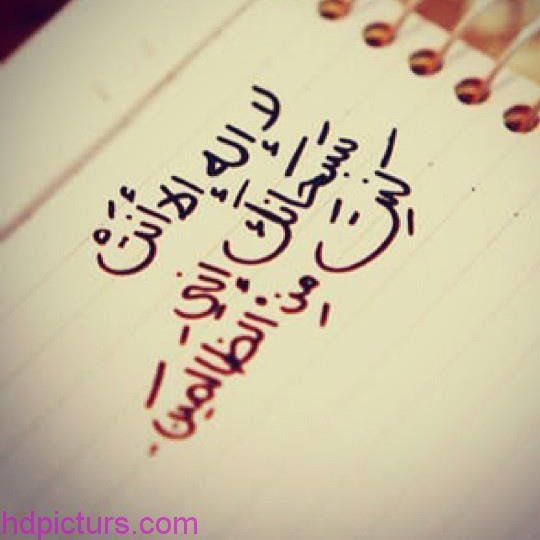 لا إله إلا أَنْتْ
سبحَانَكَ إِنيَ
كنتَ مِن الظالمَين
hdpicturs.com